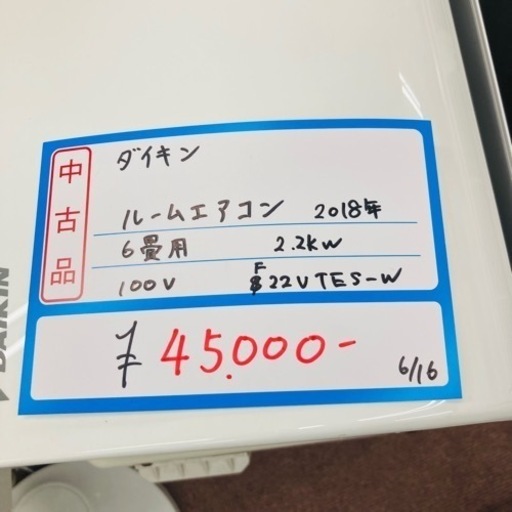 中古品
ダイキン
ルームエアコン 2018年
6畳用 2.2kW
100V F22VTES-W
¥45.000-
6/16
DAIKIN